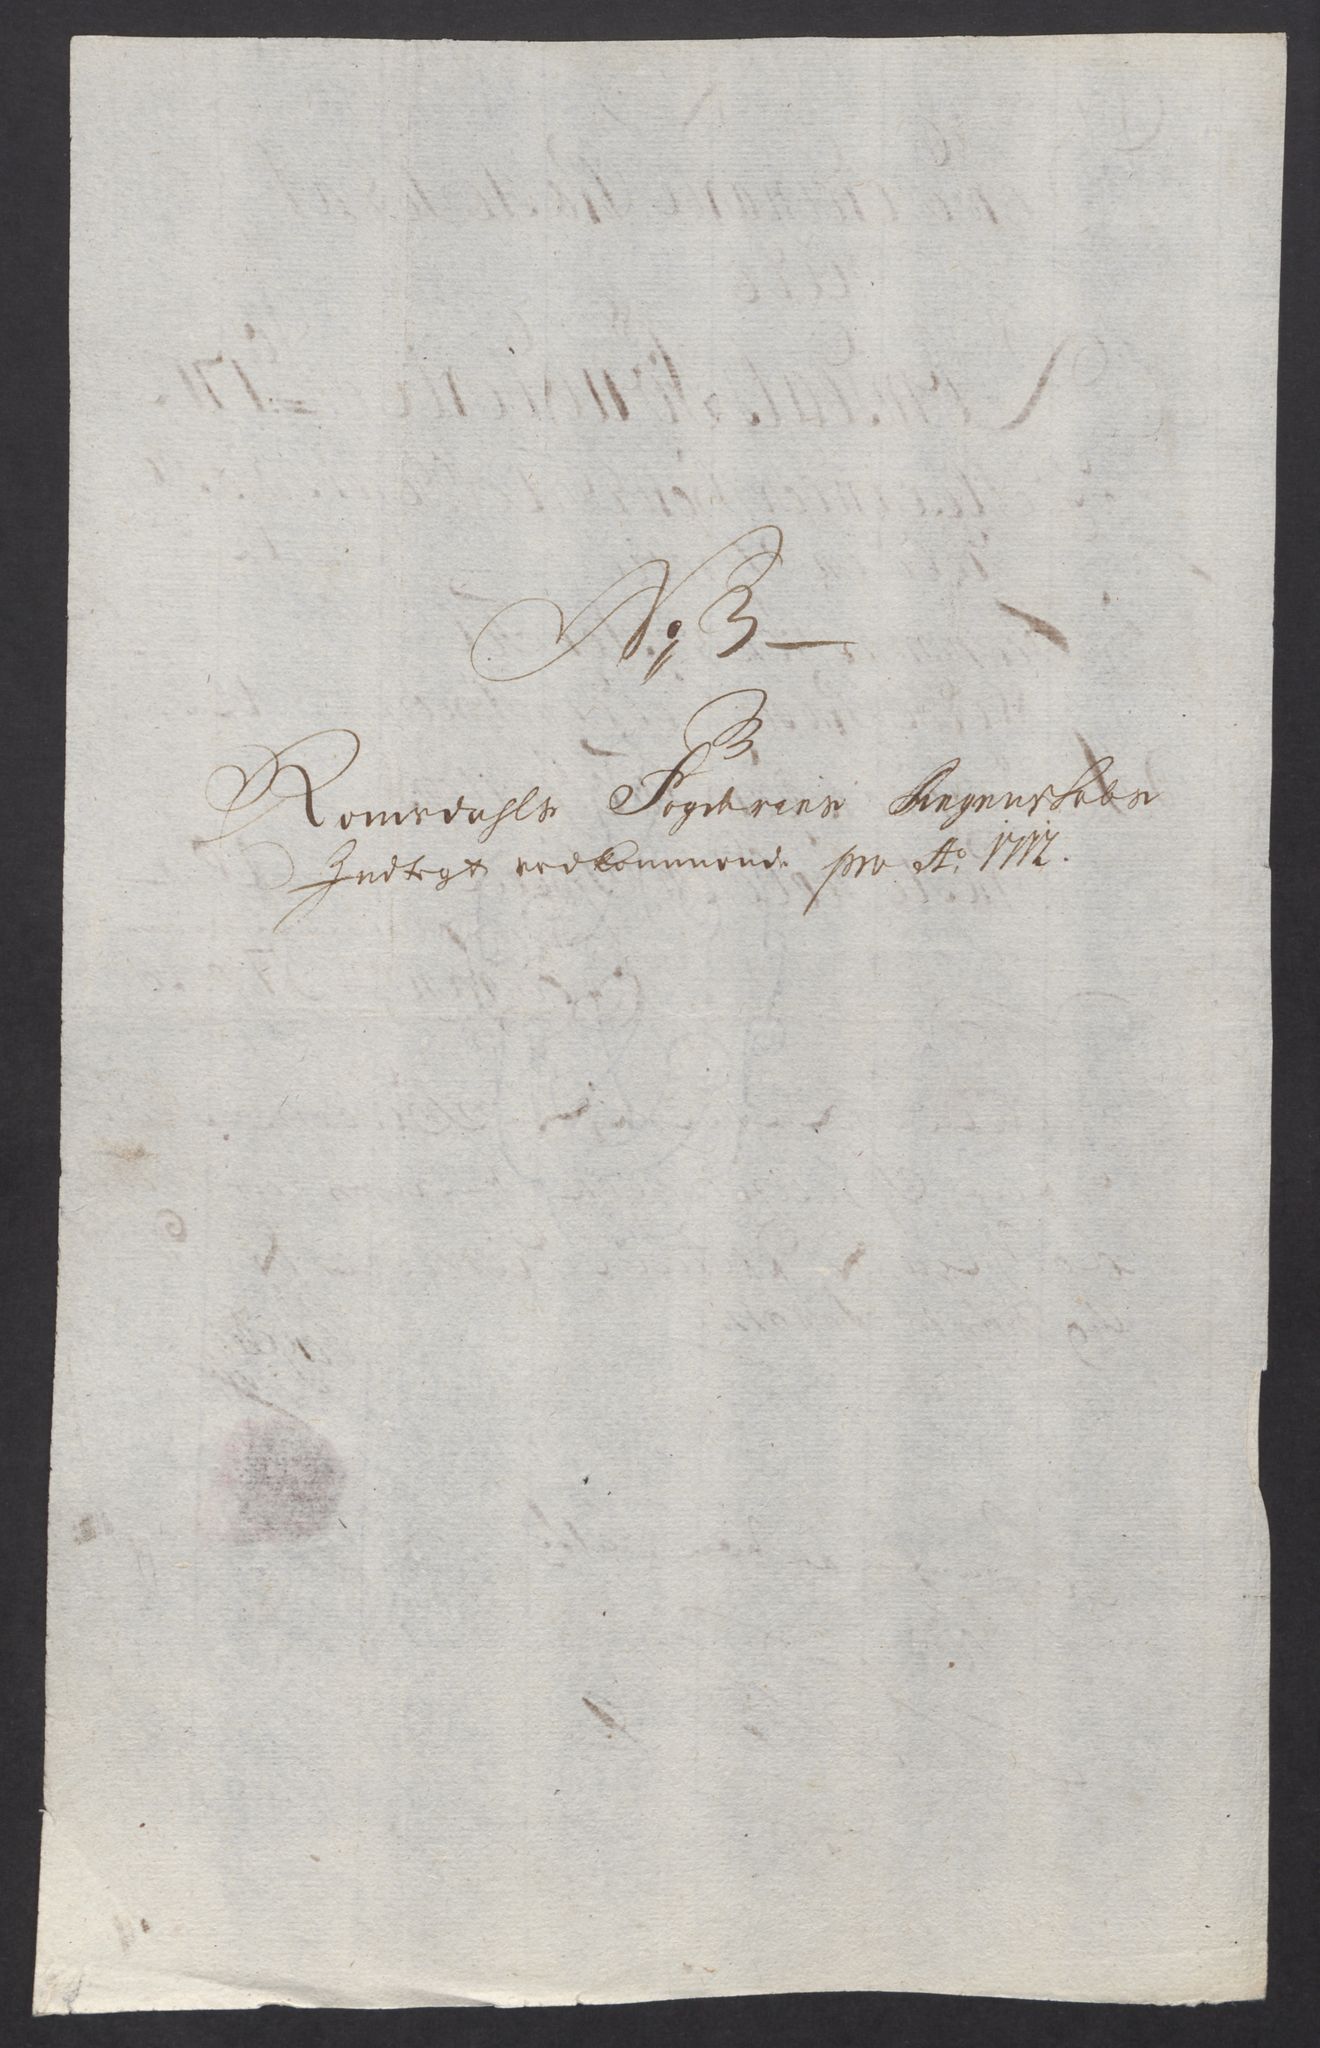 No: 3
3
Romsdahls Fogderies Regenskabs
Indtegt vedkommende pro Ao. 1712.